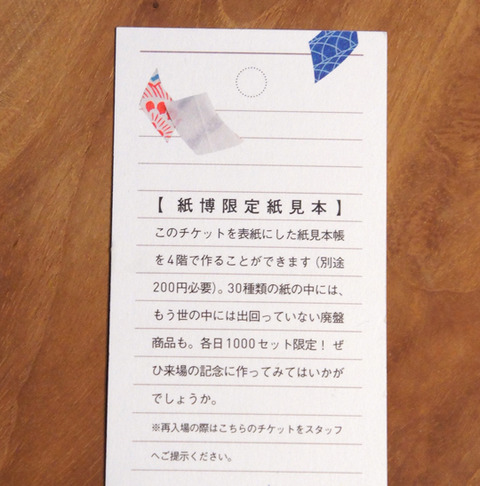 【紙博限定紙見本】
このチケットを表紙にした紙見本帳
を4階で作ることができます（別途
200円必要）。30種類の紙の中には、
もう世の中には出回っていない廃盤
商品も。各日1000セット限定！ ぜ
ひ来場の記念に作ってみてはいかが
でしょうか。
※再入場の際はこちらのチケットをスタッフ
へご提示ください。